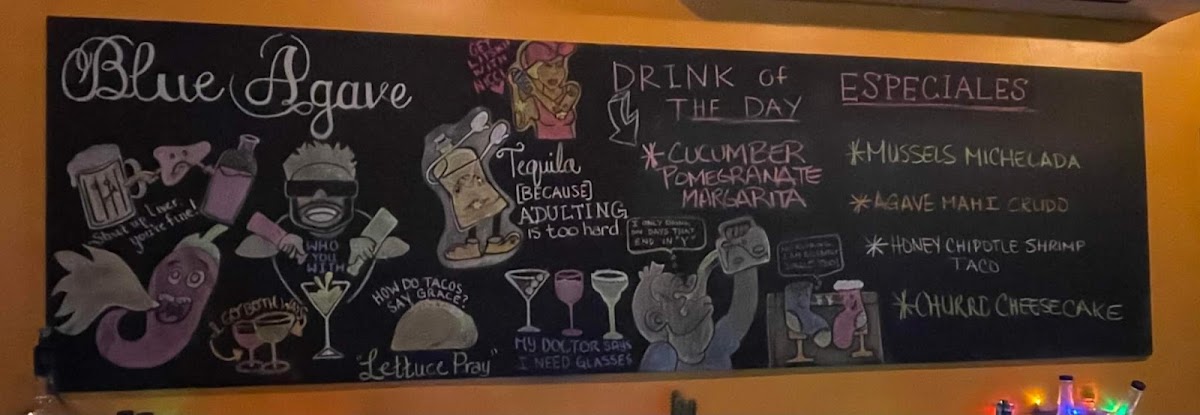 Blue Agave
Shut up Liver,
you're fine!
WHO
YOU
WITH
HOW DO TACOS
SAY GRACE?
"Lettuce Pray"
Tequila
[BECAUSE]
ADULTING
is too hard
MY DOCTOR SAYS
I NEED GLASSES
DRINK of
THE DAY
*CUCUMBER
POMEGRANATE
MARGARITA
I ONLY DRINK
ON DAYS THAT
END IN "Y"
ESPECIALES
*MUSSELS MICHELADA
*AGAVE MAHI CRUDO
*HONEY CHIPOTLE SHRIMP
TACO
*CHURRI CHEESECAKE